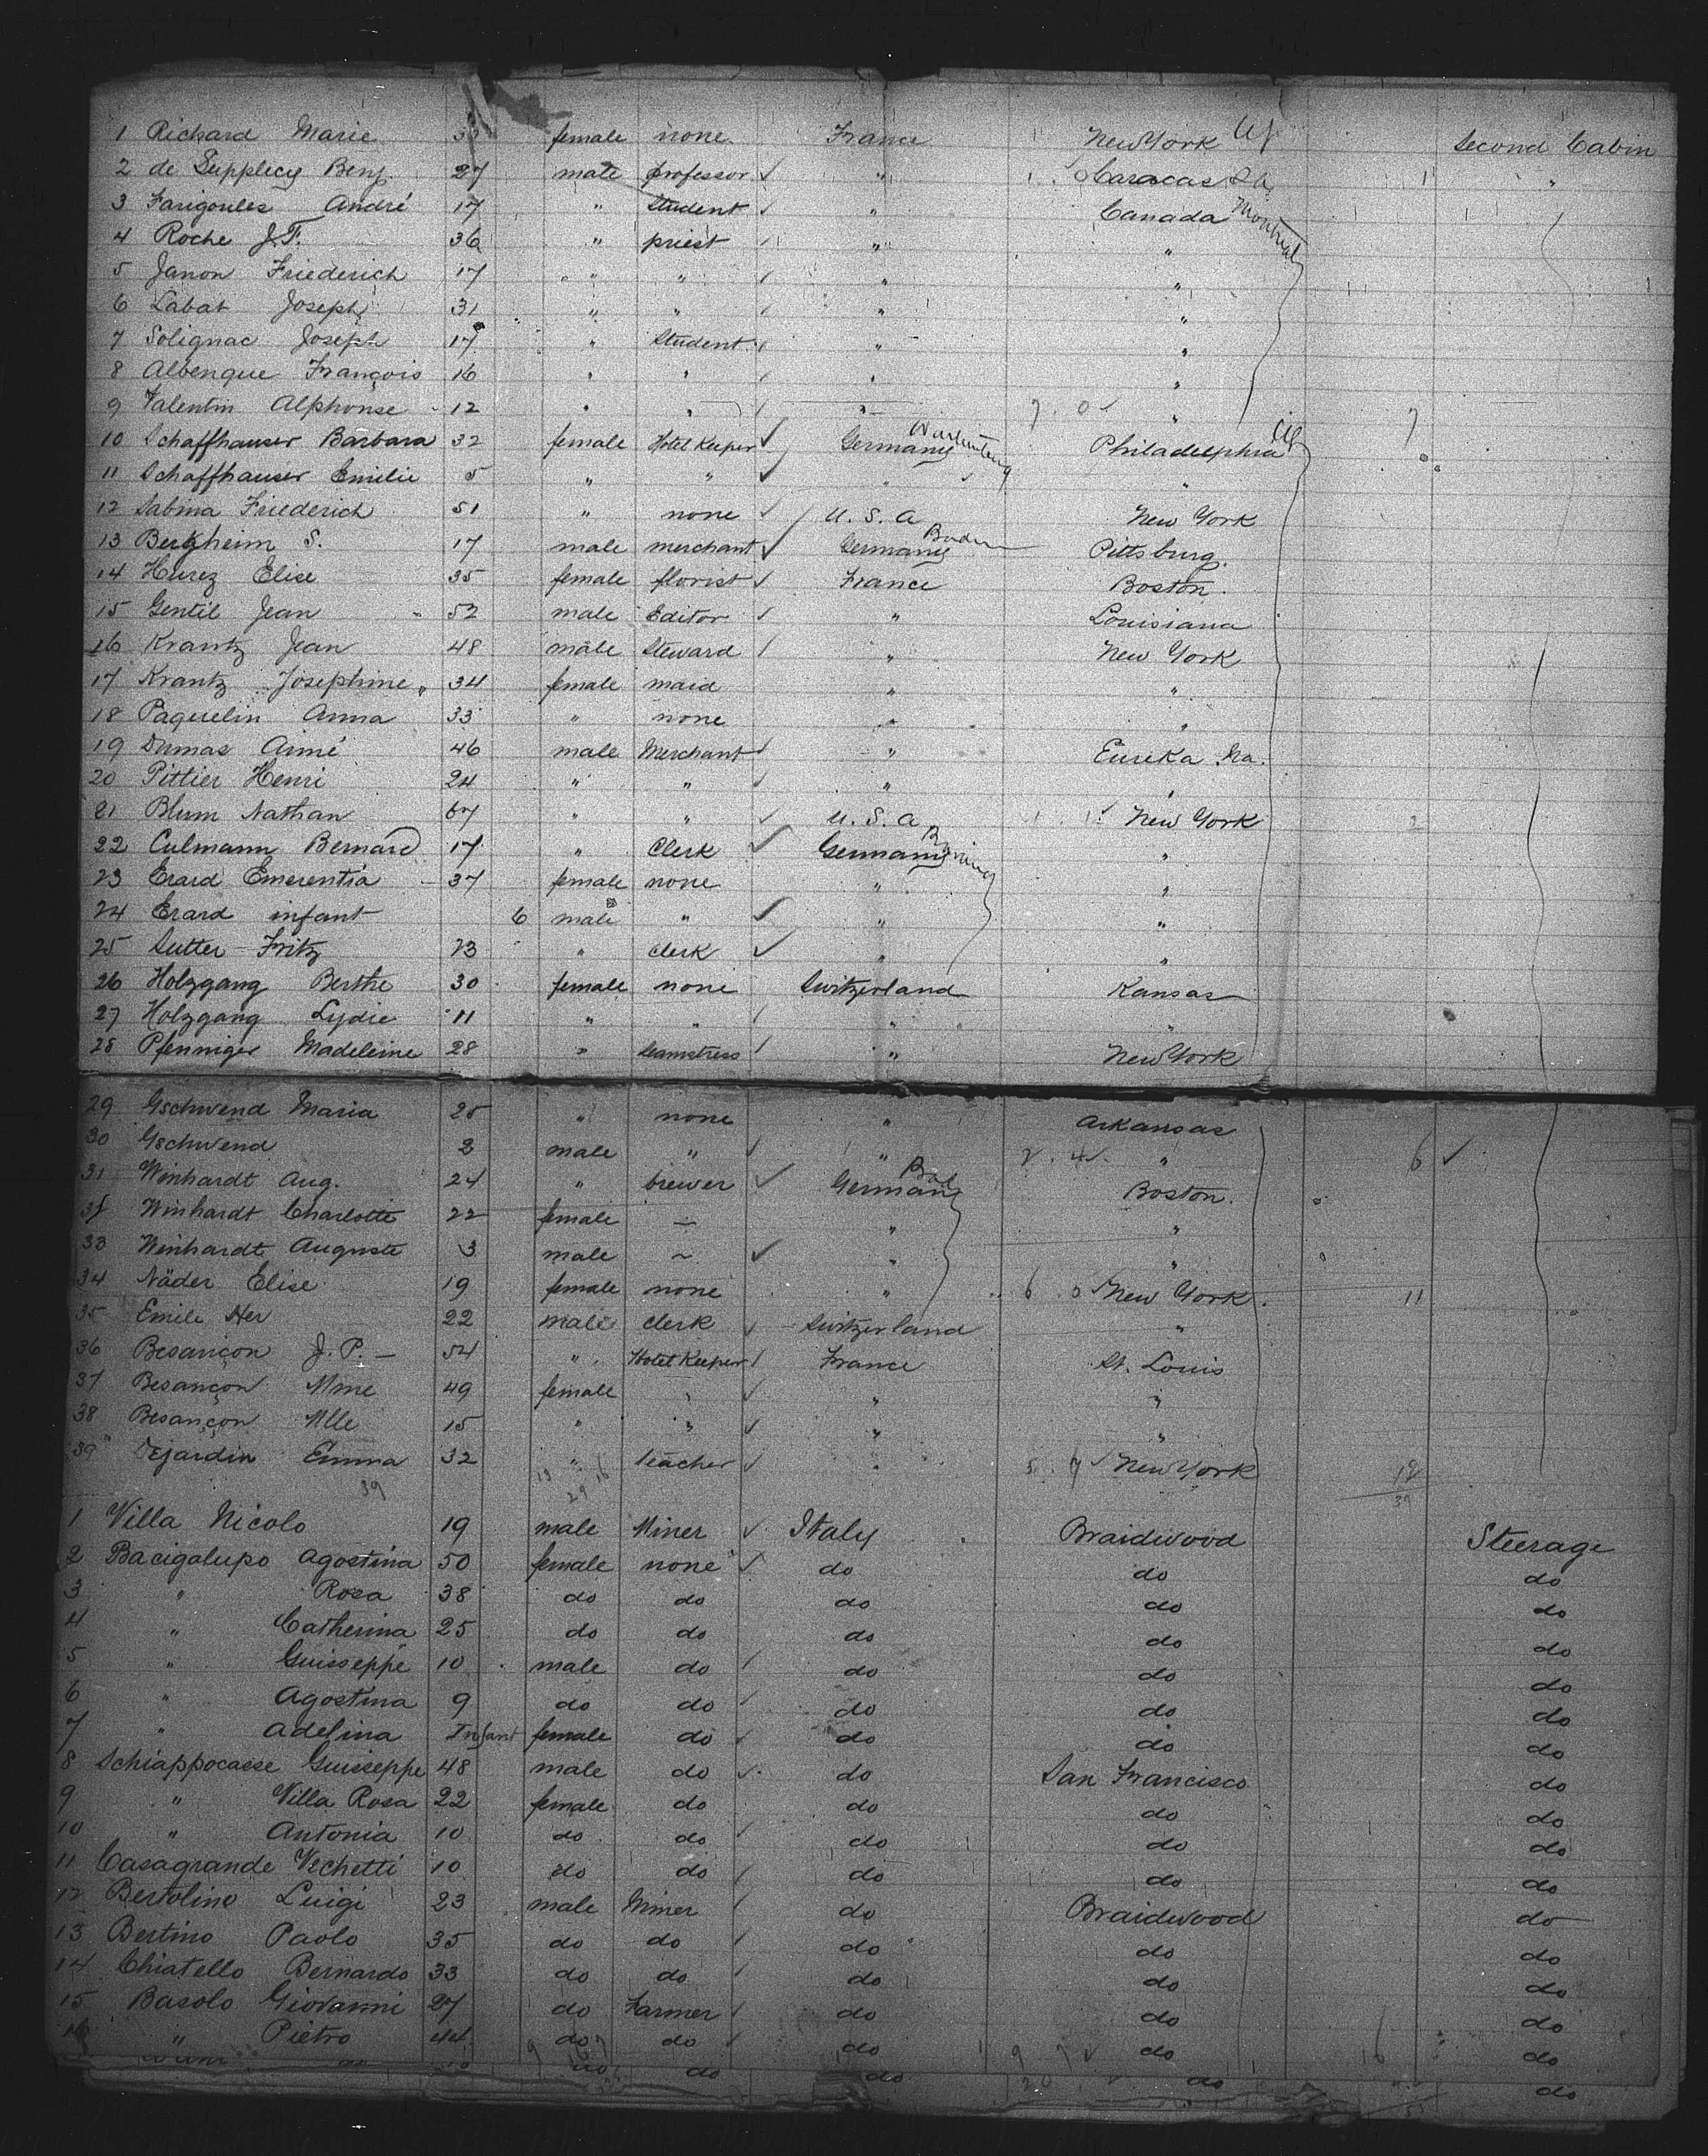 1 Richard Marie female none France New York Second Cabin
2 de Supplecy Benj. 27 male professor " Caracas S.A. "
3 Farigoules André 17 " Student " Canada Montreal
4 Roche J.F. 36 " priest " "
5 Janon Friederich 17 " " " "
6 Labat Joseph 31 " " " "
7 Solignac Joseph 17 " Student " "
8 Albenque François 16 " " " "
9 Valentin Alphonse 12 " " " "
10 Schaffhauser Barbara 32 female Hotel Keeper Germany Philadelphia
11 Schaffhauser Emilie 5 " " " "
12 Sabina Friederich 51 " none U.S.A New York
13 Berkheim S. 17 male merchant Germany Baden Pittsburg.
14 Hurez Elise 35 female florist France Boston.
15 Gentil Jean 52 male Editor " Louisiana
16 Krantz Jean 48 male Steward " New York
17 Krantz Josephine 34 female maid " "
18 Paquelin Anna 33 " none " "
19 Dumas Aimé 46 male Merchant " Eureka
20 Pittier Henri 24 " " " "
21 Blum Nathan 67 " " U.S.A New York
22 Culmann Bernard 17 " Clerk Germany "
23 Erard Emerentia 37 female none " "
24 Erard infant 6 male " " "
25 Sutter Fritz 23 " Clerk " "
26 Holzgang Berthe 30 female none Switzerland Kansas
27 Holzgang Lydie 11 " " " "
28 Pfenniger Madeleine 28 " Seamstress " New York
29 Gschwend Maria 25 " none " Arkansas
30 Gschwend 2 male " " "
31 Winhardt Aug. 24 " brewer Germany Boston.
Winhardt Charlotte 22 female — " "
33 Winhardt Auguste 3 male ~ " "
34 Näder Elise 19 female none " New York
35 Emile Her 22 male clerk Switzerland "
36 Besançon J.P. — 54 " Hotel Keeper France St. Louis
37 Besançon Mme 49 female " " "
38 Besançon Mlle 15 " " " "
39 Dejardin Emma 32 " teacher " New York
1 Villa Nicolo 19 male Miner Italy Braidwood Steerage
2 Bacigalupo Agostina 50 female none do do do
3 " Rosa 38 do do do do do
4 " Catherina 25 do do do do do
5 " Guiseppe 10 male do do do do
6 " Agostina 9 do do do do do
7 " Adelina Infant female do do do do
8 Schiappocasse Guiseppe 48 male do do San Francisco do
9 " Villa Rosa 22 female do do do do
10 " Antonia 10 do do do do do
11 Casagrande Vechetti 10 do do do do do
12 Bertolino Luigi 23 male Miner do Braidwood do
13 Bertino Paolo 35 do do do do do
14 Chiatello Bernardo 33 do do do do do
15 Basolo Giovanni 27 do Farmer do do do
16 " Pietro 44 do do do do do
do do do do do